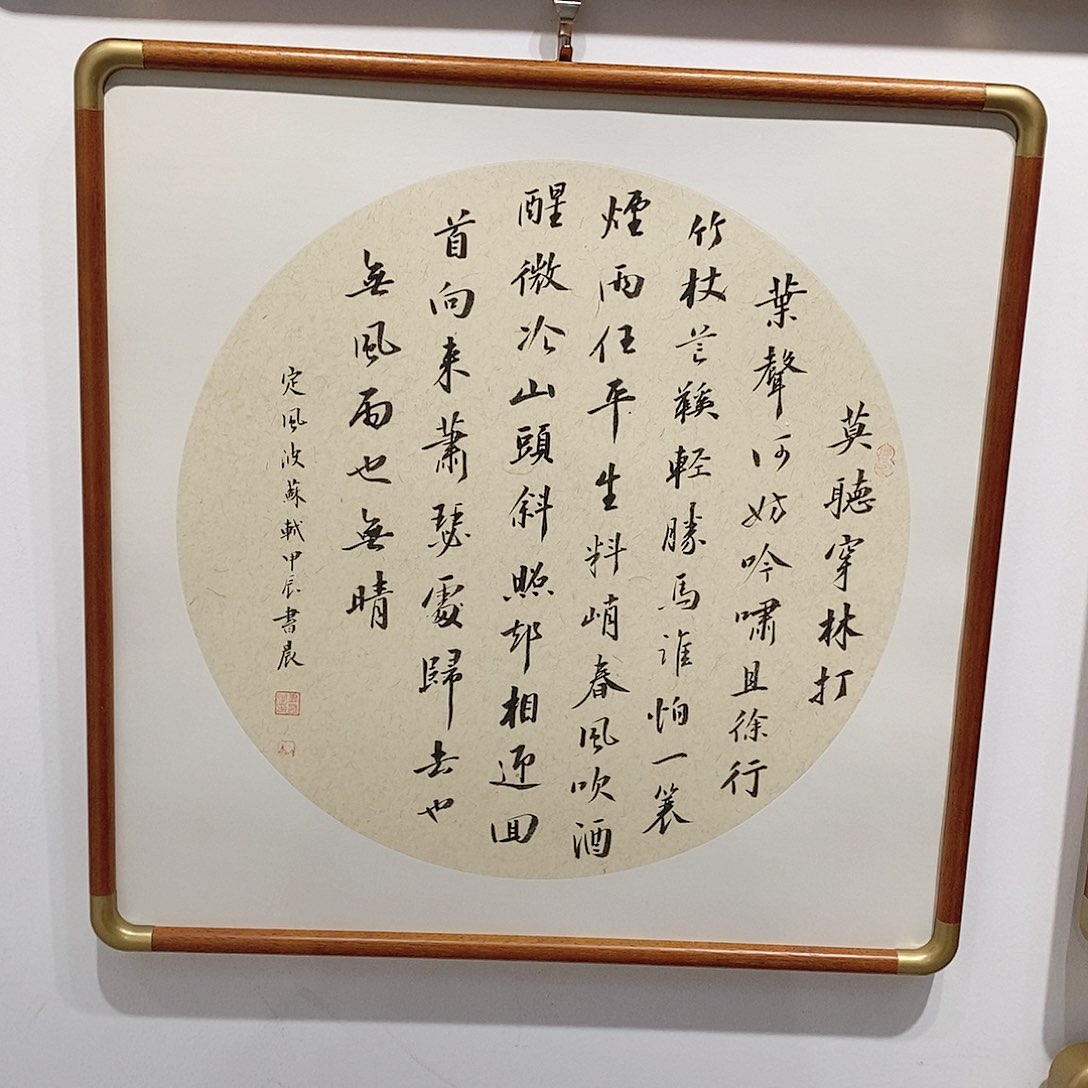 莫聽穿林打
葉聲何妨吟嘯且徐行
竹杖芒鞵輕勝馬誰怕一蓑
煙雨任平生料峭春風吹酒
醒微冷山頭斜照却相迎回
首向來蕭瑟處歸去也
無風雨也無晴
定風波蘇軾甲辰書晨